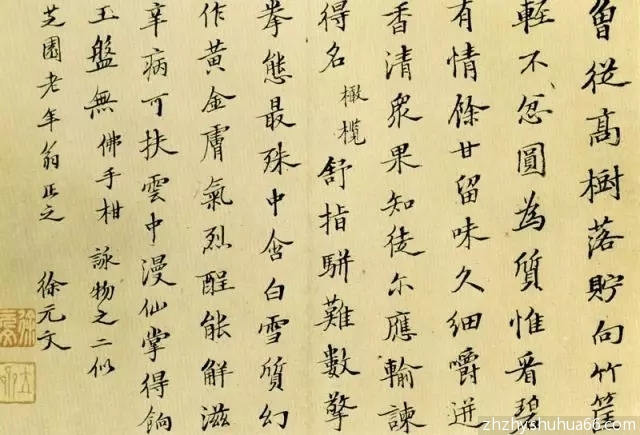 曾從高樹落貯向竹筐
輕不忿圓為質惟看碧
有情餘甘留味久細嚼迸
香清眾果知徒尔應輸諫
得名 橄欖 舒指騈難數擎
拳態最殊中含白雪質幻
作黃金膚氣烈酲能解滋
辛病可扶雲中漫仙掌得餉
玉盤無 佛手柑 詠物之二似
芝園老年翁正之 徐元文
zhzhyshuhua66.com